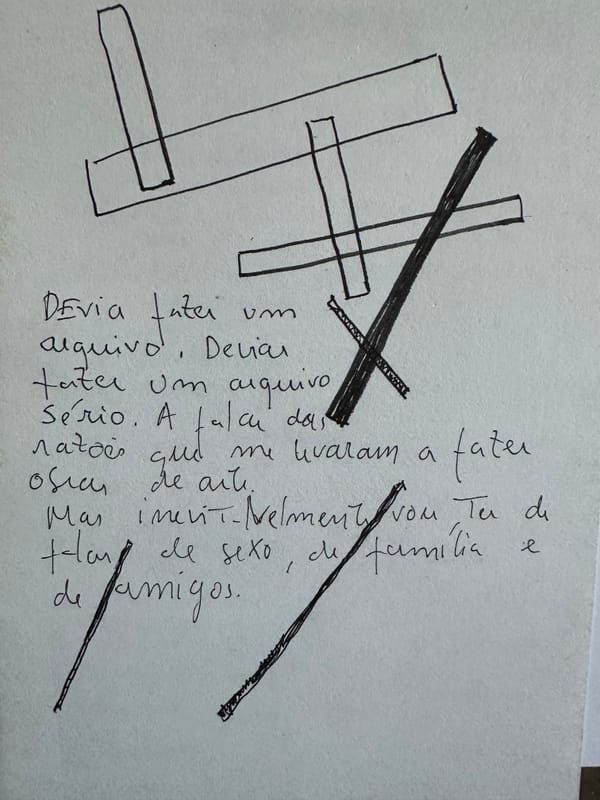 DEvia fazer um
arquivo. Devia
fazer um arquivo
sério. A falar das
razões que me levaram a fazer
obras de arte.
Mas inevitavelmente vou ter de
falar de sexo, de família e
de amigos.